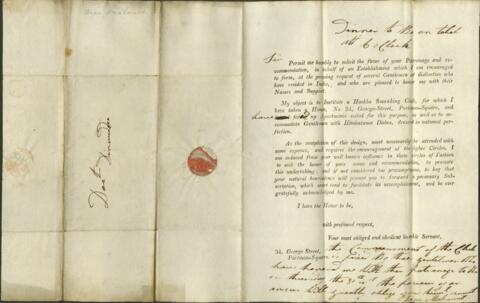 Dinner to be on table
at 6 o Clock
Sir
Permit me humbly to solicit the favor of your Patronage and re-
commendation, in behalf of an Establishment which I am encouraged
to form, at the pressing request of several Gentlemen of distinction who
have resided in India, and who are pleased to honor me with their
Names and Support.
My object is to Institute a Hookha Smoaking Club, for which I
have taken a House, No. 34, George-Street, Portman-Square, and
have up Apartments suited for this purpose, as well as to ac-
commodate Gentlemen with Hindostanee Dishes, dressed in national per-
fection.
As the completion of this design, must necessarily be attended with
some expence, and requires the encouragement of the higher Circles, I
am induced from your well known influence in those circles of Fashion
to ask the honor of your name and recommendation, to promote
this undertaking: and if not considered too presumptuous, to beg that
your natural benevolence will permit you to forward a pecuniary Sub-
scription, which must tend to facilitate its accomplishment, and be ever
gratefully acknowledged by me.
I have the Honor to be,
with profound respect,
Your most obliged and obedient humble Servant,
34, George Street,
Portman-Square
the Commencement of the Club
is by those gentlemen Who
have honored me With their patronage to
on the the
answer Will oblige your